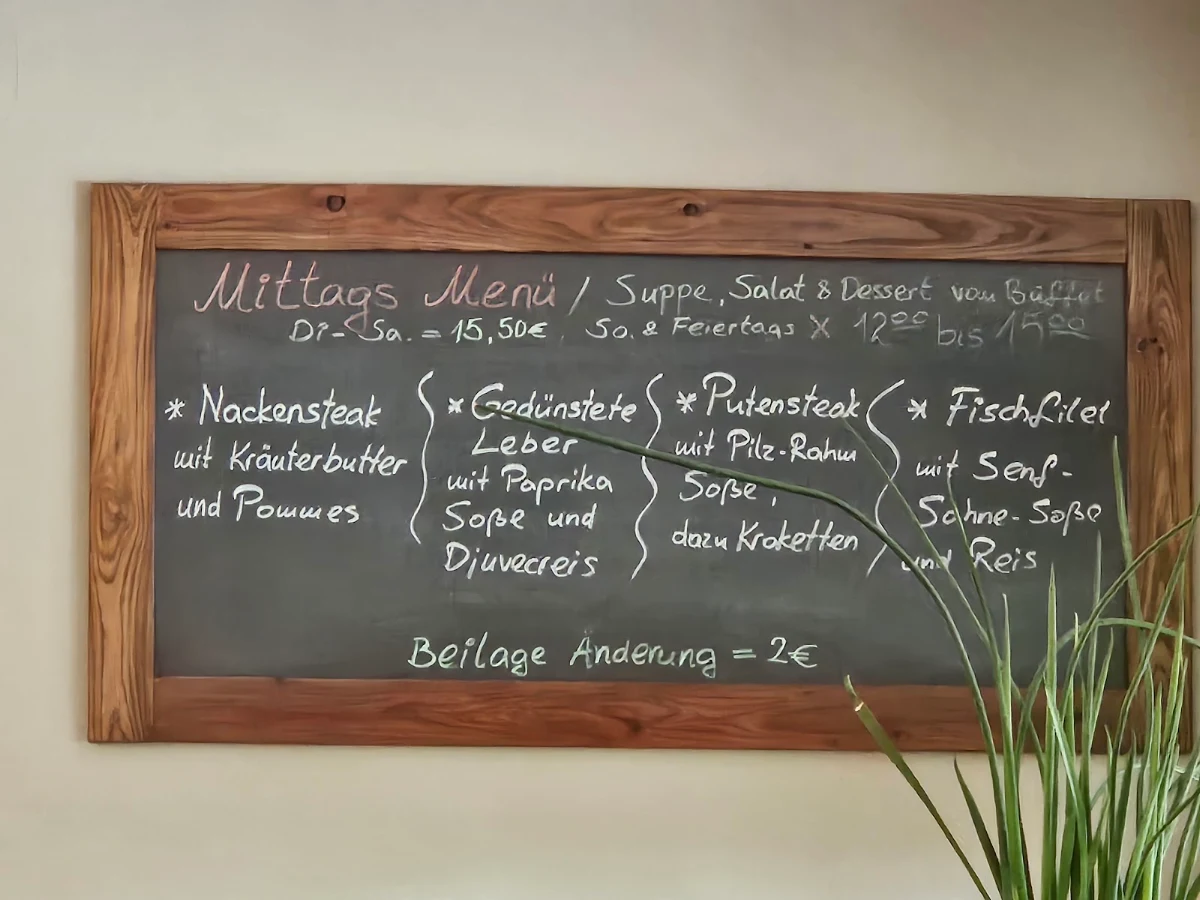 Mittags Menü / Suppe, Salat & Dessert vom Büffet
Di - Sa. = 15,50€, So. & Feiertags X 12⁰⁰ bis 15⁰⁰
* Nackensteak
mit Kräuterbutter
und Pommes
* Gedünstete
Leber
mit Paprika
Soße und
Djuvecreis
* Putensteak
mit Pilz-Rahm
Soße,
dazu Kroketten
* Fischfilet
mit Senf-
Sahne-Soße
und Reis
Beilage Änderung = 2€